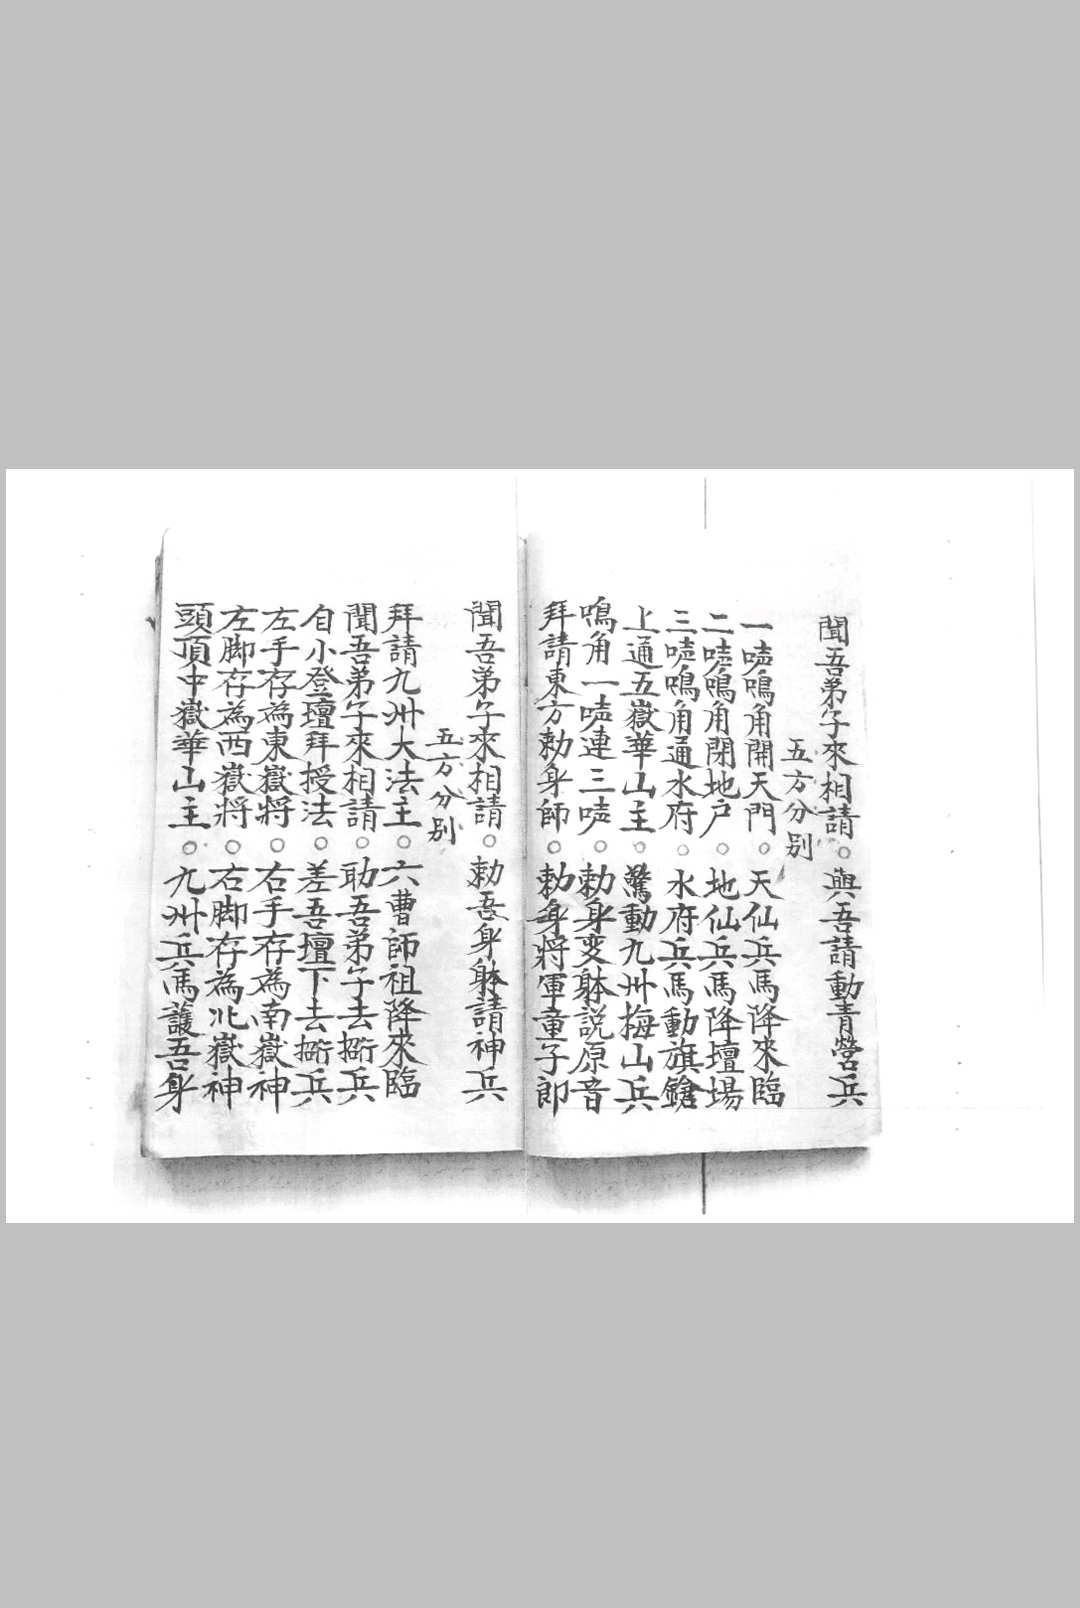 聞吾弟子來相請○與吾請動青營兵
五方分別
一㗢鳴角開天門○天仙兵馬降來臨
二㗢鳴角閉地户○地仙兵馬降壇場
三㗢鳴角通水府○水府兵馬動旗鎗
上通五嶽華山主○驚動九州梅山兵
鳴角一㗢連三㗢○勅身变躰説原音
拜請東方勅身師○勅身將軍童子郎
聞吾弟子來相請○勅吾身躰請神兵
五方分別
拜請九州大法主○六曹師祖降來臨
聞吾弟子來相請○助吾弟子去 兵
自小登壇拜授法○差吾壇下去 兵
左手存為東嶽將○右手存為南嶽神
左脚存為西嶽將○右脚存為北嶽神
頭頂中嶽華山主○九州兵馬護吾身